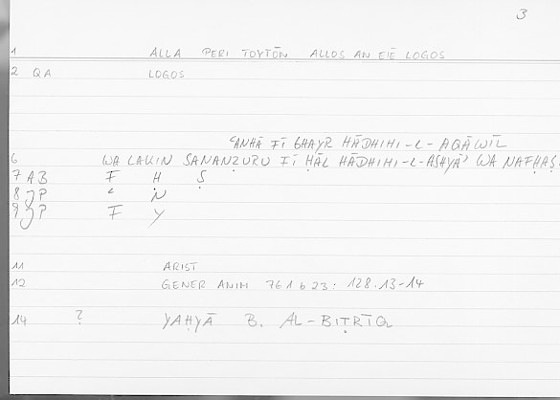 3
1 ALLA PERI TOYTŌN ALLOS AN EIĒ LOGOS
2 QA LOGOS
ʿANHĀ FĪ GHAYR HĀDHIHI-L-AQĀWĪL
6 WA LAKIN SANANẒURU FĪ ḤĀL HĀDHIHI-L-ASHYĀʾ WA NAFḤAṢ
7 AB F Ḥ Ṣ
8 JP ʿ N
9 JP F Y
11 ARIST
12 GENER ANIM 761 b 23: 128.13-14
14 ? YAḤYĀ B. AL-BIṬRĪQ